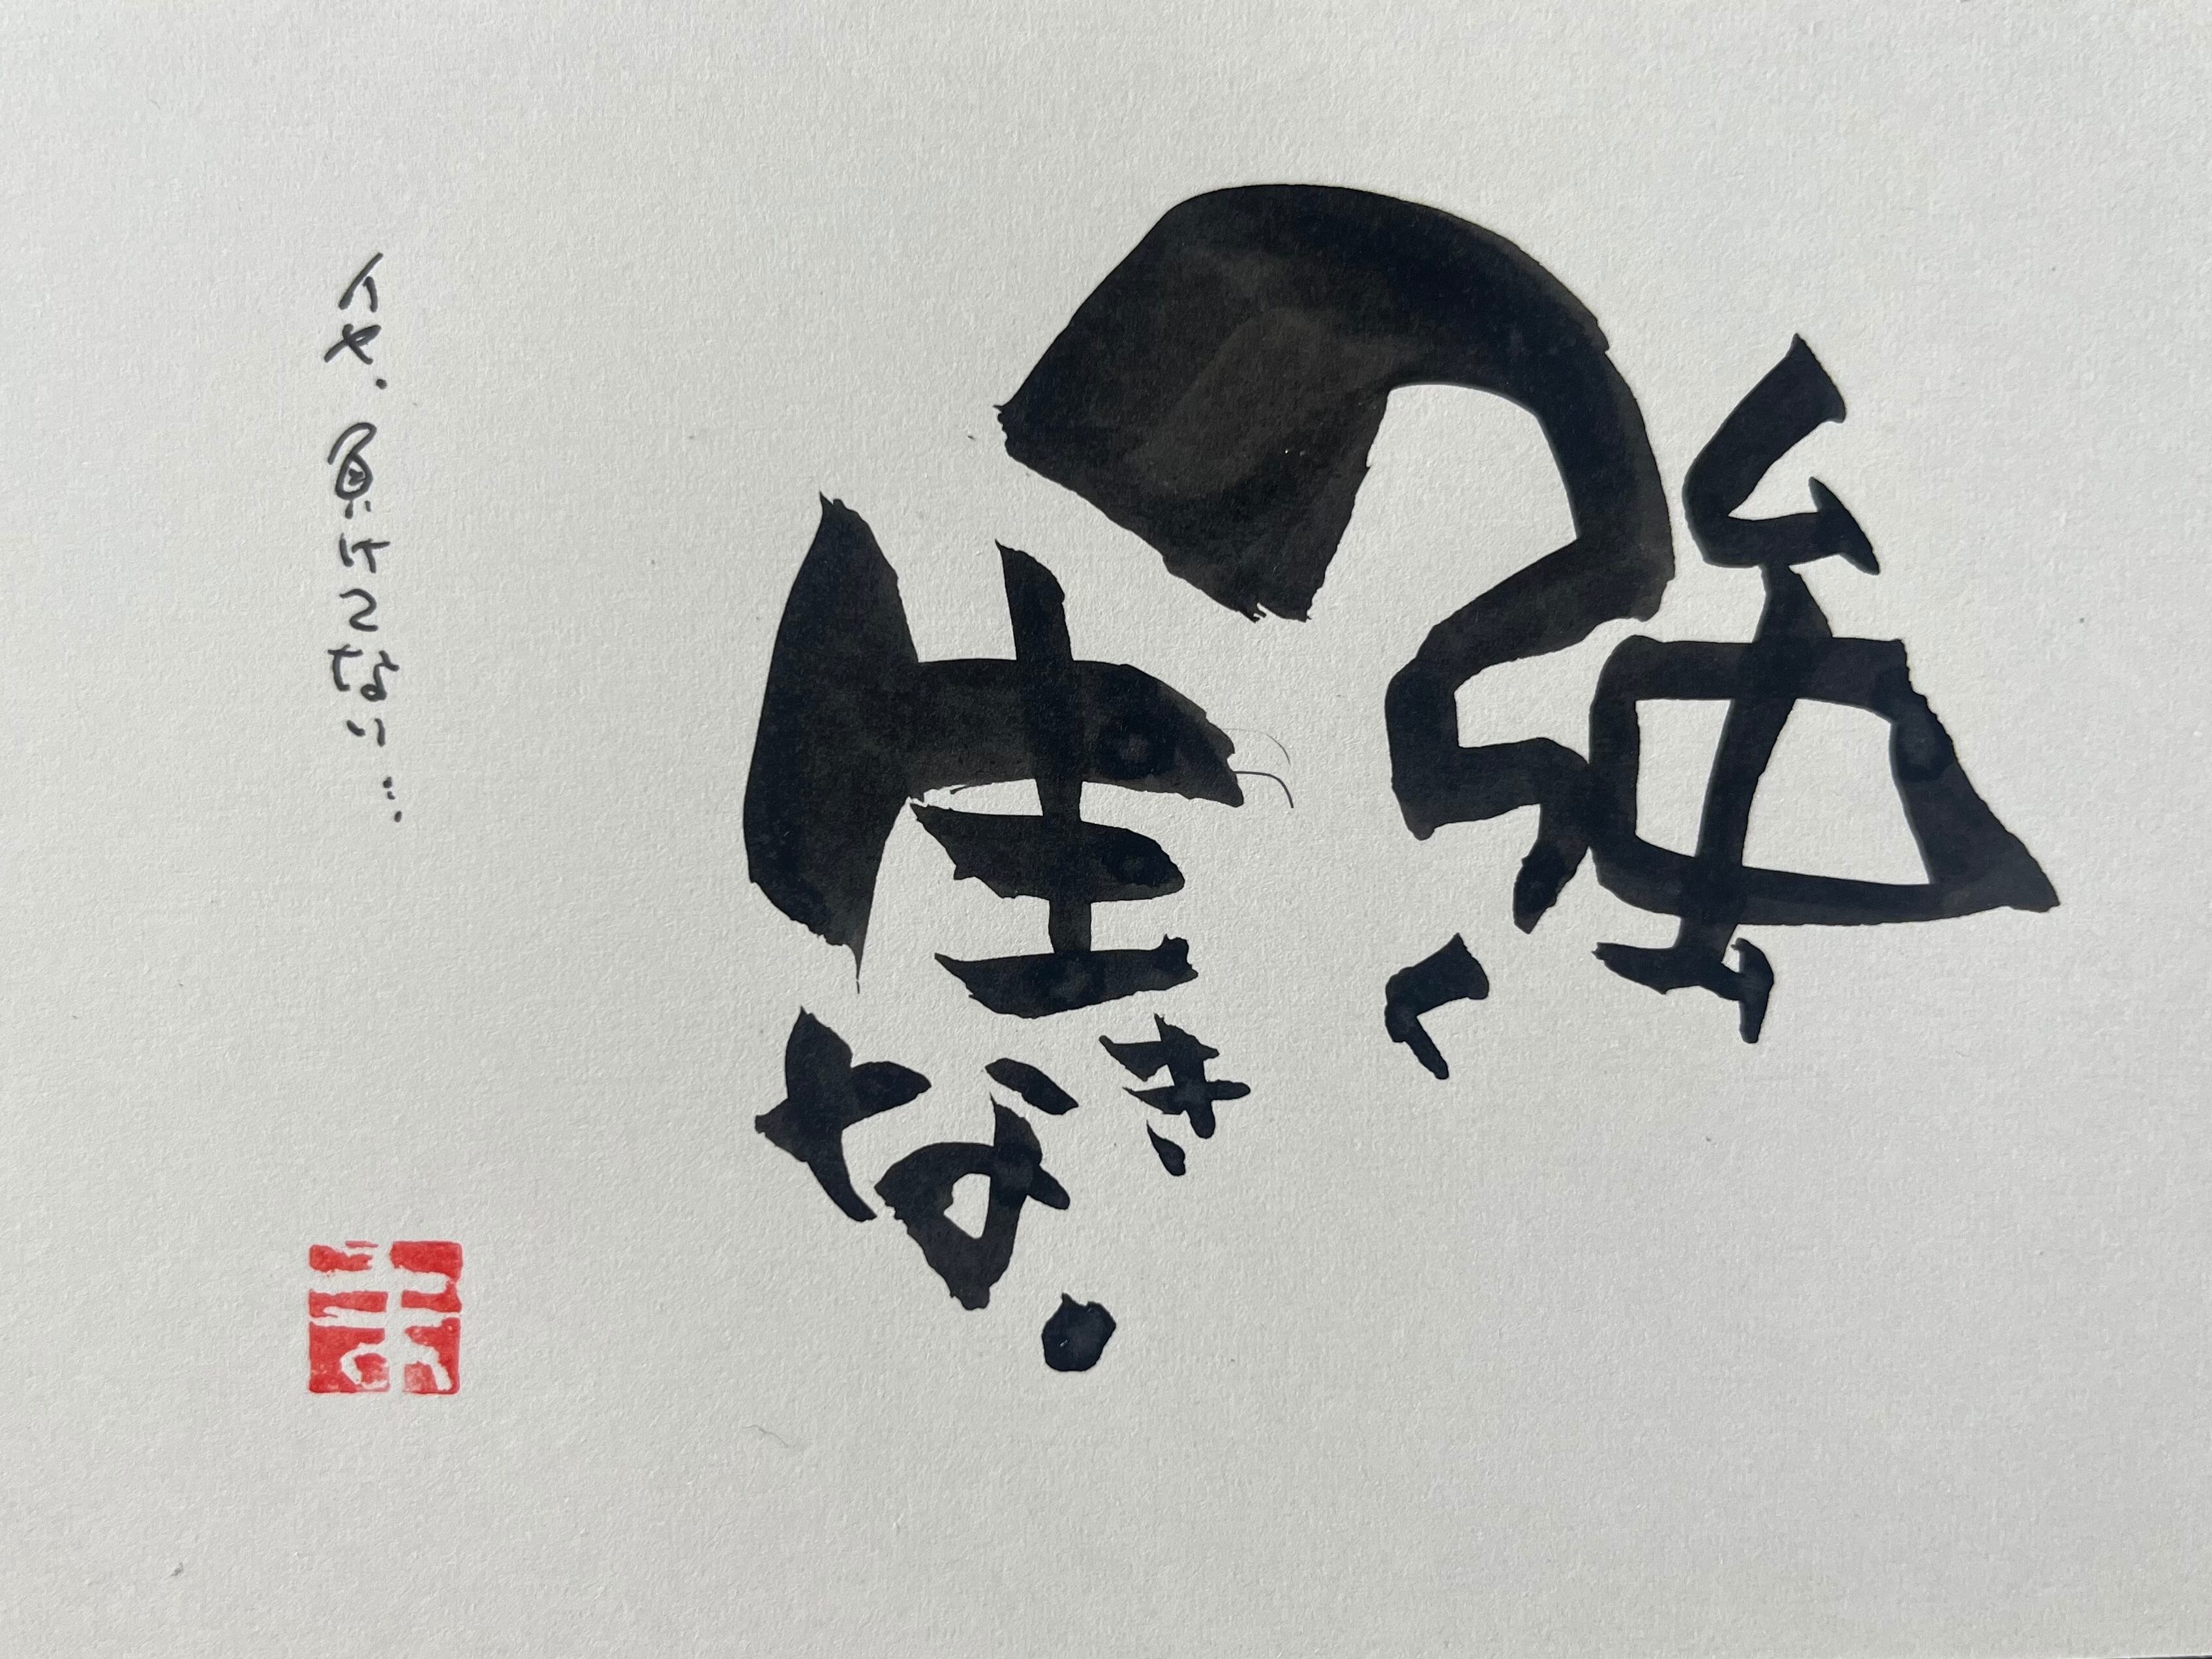 強く
生きな.
イヤ.負けてない…